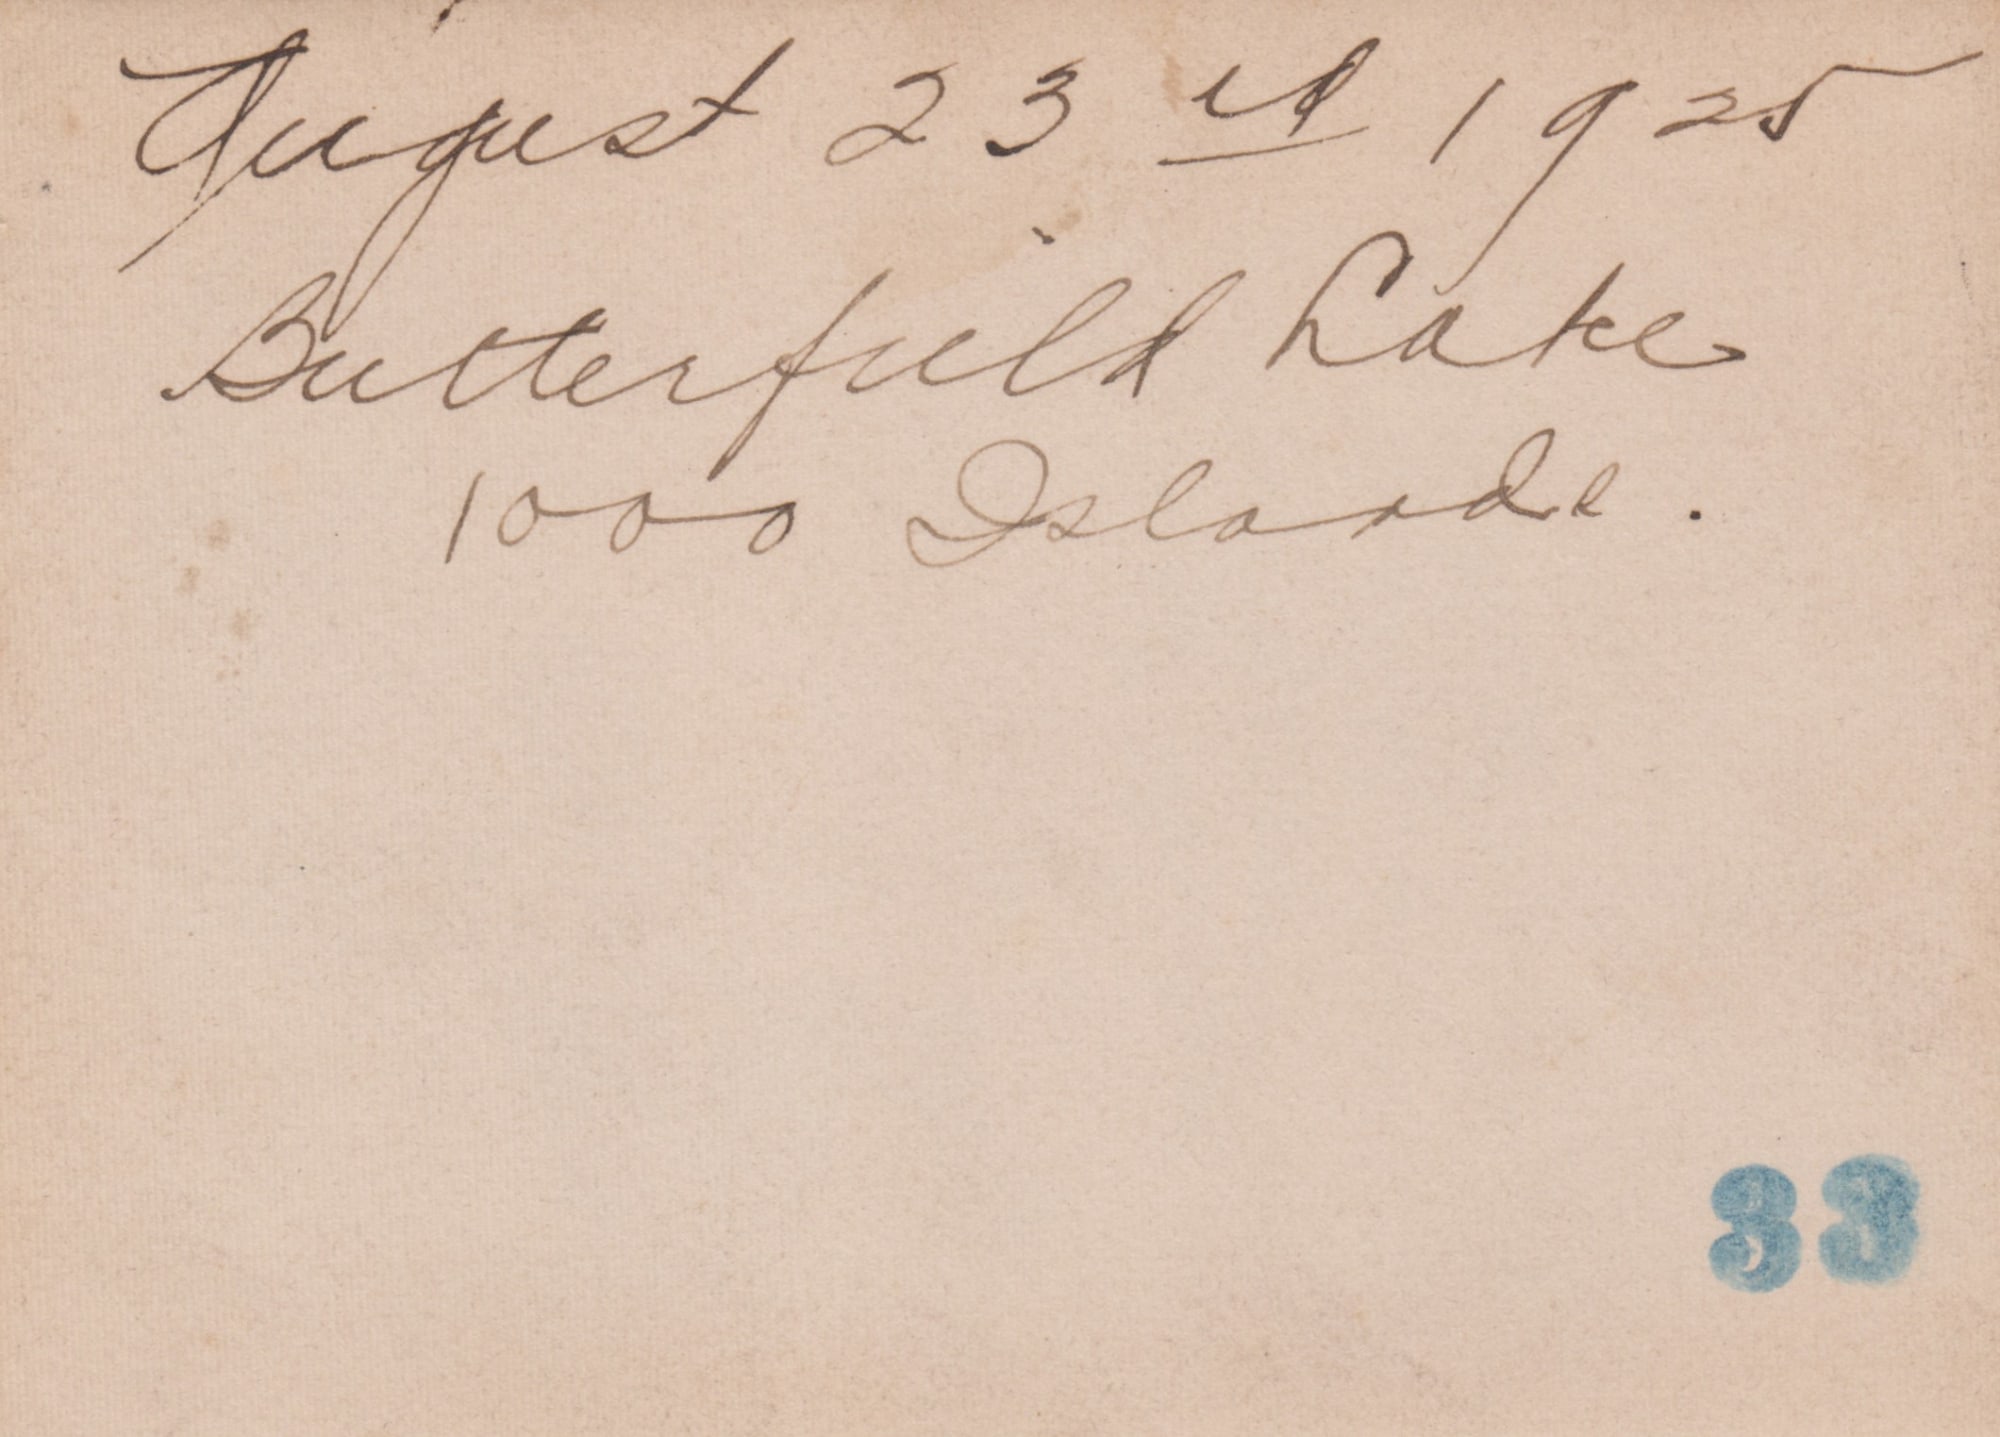 August 23rd 1925
Butterfield Lake
1000 Islands.
33